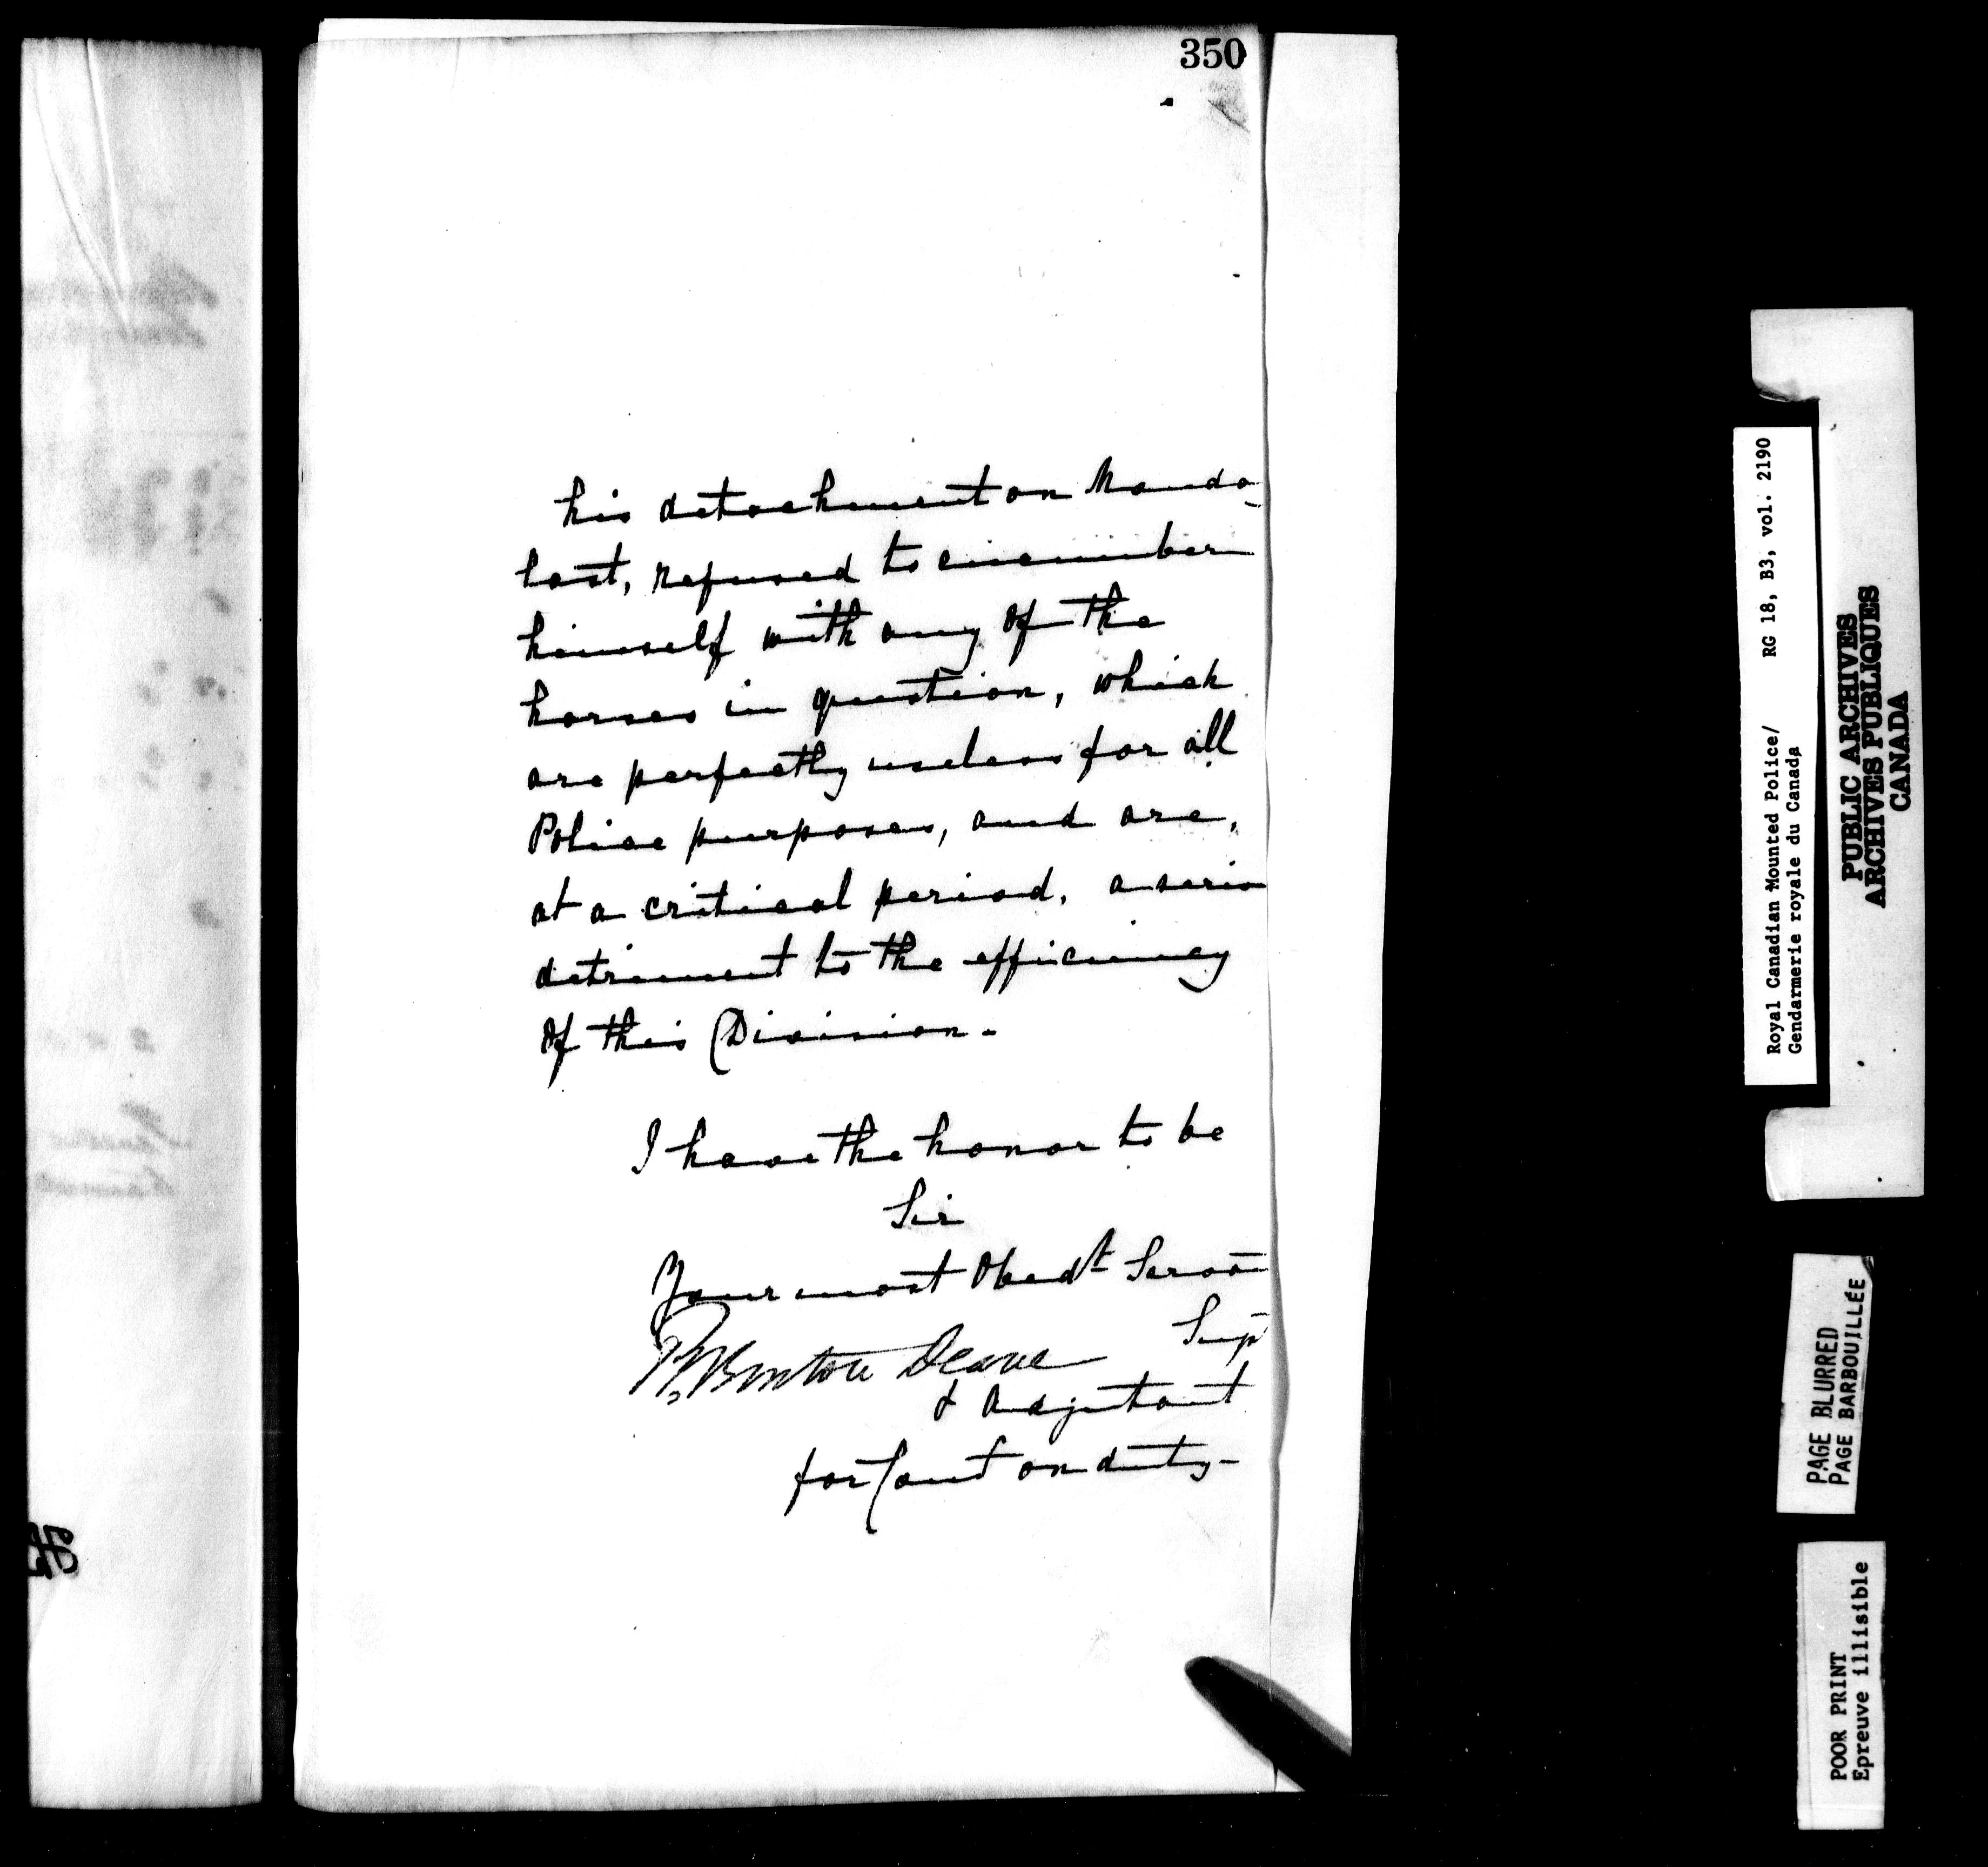 350
his detachment on Monda
last, refused to encumber
himself with any of the
horses in question, which
are perfectly useless for all
Police purposes, and are,
at a critical period, a serio
detriment to the efficiency
of this Division -
I have the honor to be
Sir
Your most Obedt Serva
Sup
R Burton Deane
& Adjutant
for Comt on duty -
Royal Canadian Mounted Police/ RG 18, B3, vol. 2190
Gendarmerie royale du Canada
PUBLIC ARCHIVES
ARCHIVES PUBLIQUES
CANADA
PAGE BLURRED
PAGE BARBOUILLÉE
POOR PRINT
Epreuve illisible